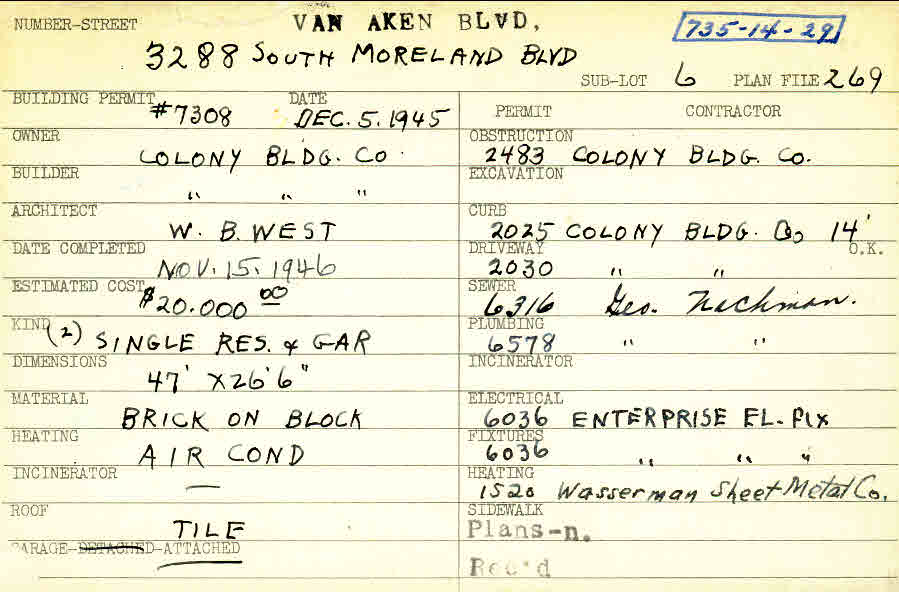 NUMBER-STREET VAN AKEN BLVD,
735-14-29
3288 SOUTH MORELAND BLVD
SUB-LOT 6 PLAN FILE 269
BUILDING PERMIT #7308 DATE DEC. 5. 1945
PERMIT CONTRACTOR
OWNER COLONY BLDG. CO.
OBSTRUCTION 2483 COLONY BLDG. CO.
BUILDER " " "
EXCAVATION
ARCHITECT W. B. WEST
CURB 2025 COLONY BLDG. Co 14'
DATE COMPLETED NOV. 15. 1946
DRIVEWAY 2030 " " O.K.
ESTIMATED COST $20.000 00
SEWER 6316 Geo. Nachman.
KIND (2) SINGLE RES. & GAR
PLUMBING 6578 " "
DIMENSIONS 47' X 26' 6"
INCINERATOR
MATERIAL BRICK ON BLOCK
ELECTRICAL 6036 ENTERPRISE EL. FIX
HEATING AIR COND
FIXTURES 6036 " " "
INCINERATOR —
HEATING 1520 Wasserman Sheet Metal Co.
ROOF TILE
SIDEWALK
Plans-n.
GARAGE-DETACHED-ATTACHED
Rec'd